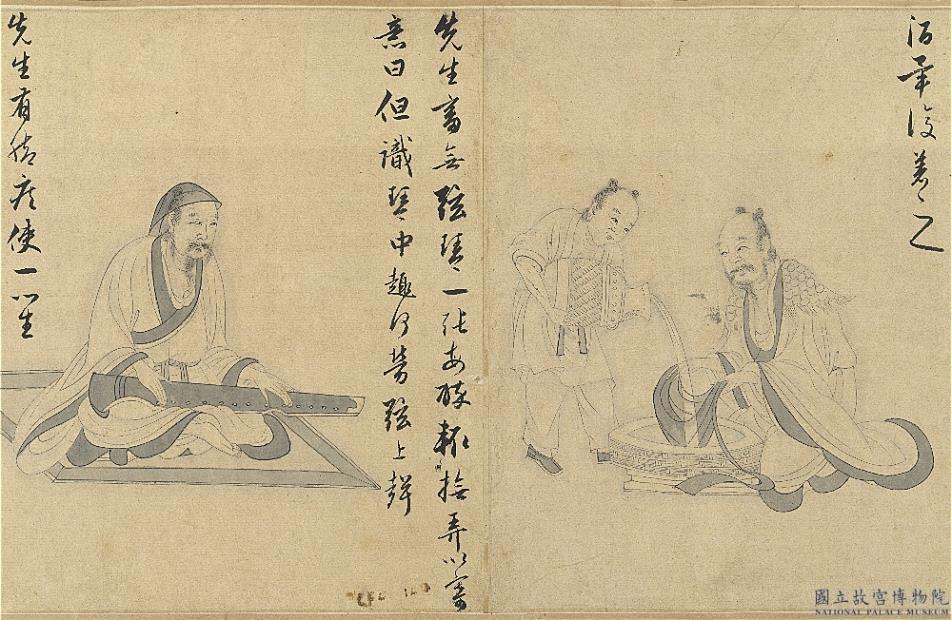 酒畢復著之
先生畜無弦琴一張每醉輒撫弄以寄
意曰但識琴中趣何勞弦上聲
先生有脚疾使一門生
國立故宮博物院
NATIONAL PALACE MUSEUM